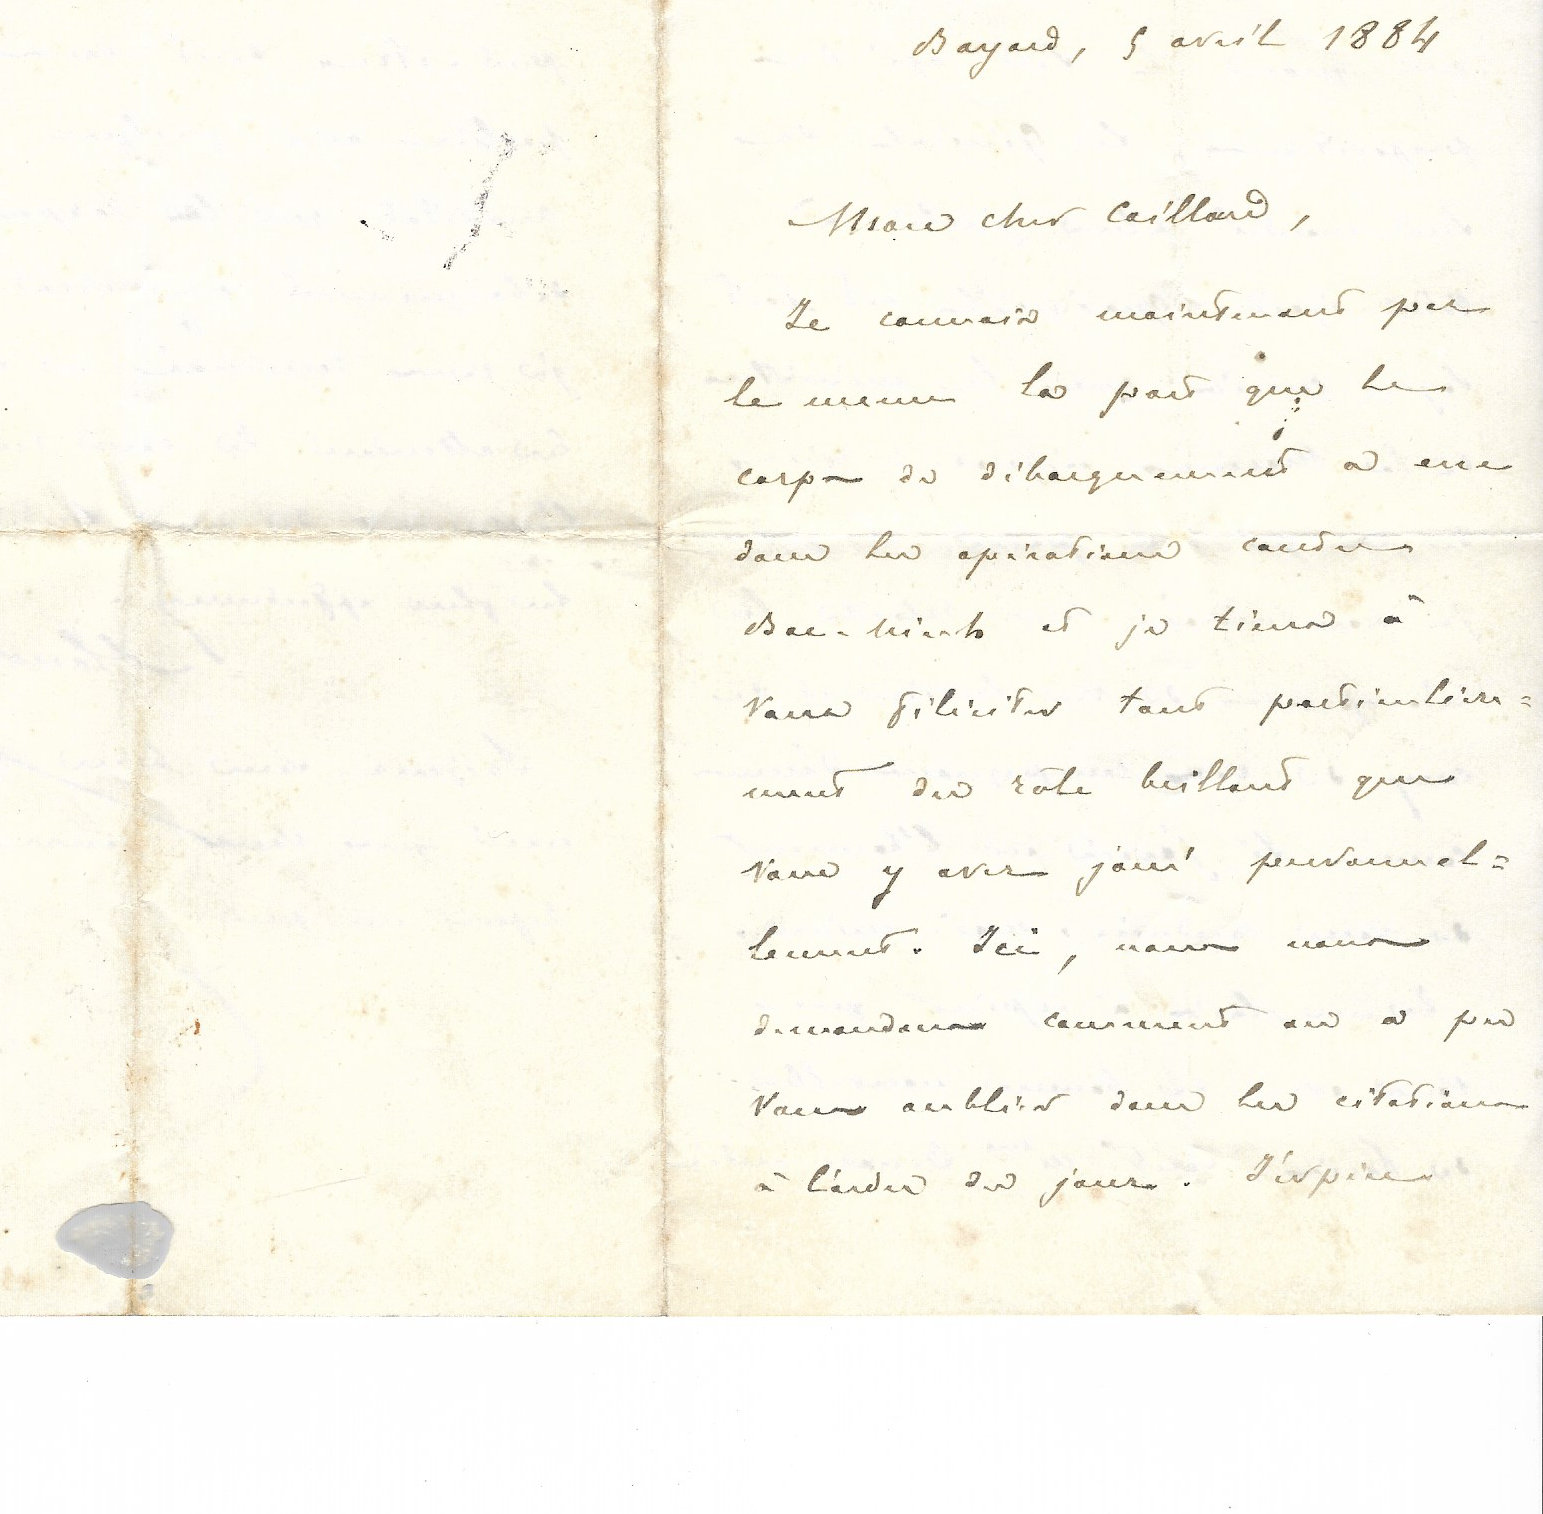 Bayard, 5 avril 1884
Mon cher Caillard,
Je connais maintenant par
le menu la part que le
corps de débarquement a eue
dans les opérations contre
Bac-Ninh et je tiens à
vous féliciter tout particulière=
ment du rôle brillant que
vous y avez joué personnel=
lement. Ici, nous nous
demandons comment on a pu
vous oublier dans les citations
à l'ordre du jour. J'espère